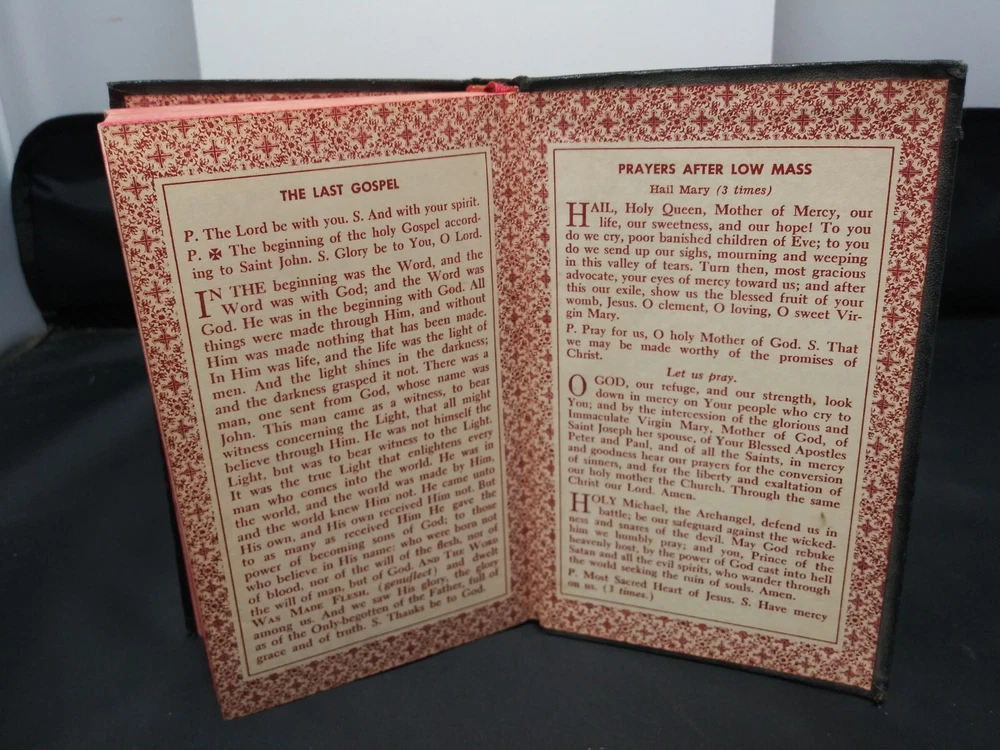 THE LAST GOSPEL
P. The Lord be with you. S. And with your spirit.
P. ✠ The beginning of the holy Gospel accord-
ing to Saint John. S. Glory be to You, O Lord.
IN THE beginning was the Word, and the
Word was with God; and the Word was
God. He was in the beginning with God. All
things were made through Him, and without
Him was made nothing that has been made.
In Him was life, and the life was the light of
men. And the light shines in the darkness;
and the darkness grasped it not. There was a
man, one sent from God, whose name was
John. This man came as a witness, to bear
witness concerning the Light, that all might
believe through Him. He was not himself the
Light, but was to bear witness to the Light.
It was the true Light that enlightens every
man who comes into the world. He was in
the world, and the world was made by Him,
and the world knew Him not. He came unto
His own, and His own received Him not. But
to as many as received Him He gave the
power of becoming sons of God; to those
who believe in His name: who were born not
of blood, nor of the will of the flesh, nor of
the will of man, but of God. AND THE WORD
WAS MADE FLESH, (genuflect) and dwelt
among us. And we saw His glory, the glory
as of the Only-begotten of the Father, full of
grace and of truth. S. Thanks be to God.
PRAYERS AFTER LOW MASS
Hail Mary (3 times)
HAIL, Holy Queen, Mother of Mercy, our
life, our sweetness, and our hope! To you
do we cry, poor banished children of Eve; to you
do we send up our sighs, mourning and weeping
in this valley of tears. Turn then, most gracious
advocate, your eyes of mercy toward us; and after
this our exile, show us the blessed fruit of your
womb, Jesus. O clement, O loving, O sweet Vir-
gin Mary.
P. Pray for us, O holy Mother of God. S. That
we may be made worthy of the promises of
Christ.
Let us pray.
O GOD, our refuge, and our strength, look
down in mercy on Your people who cry to
You; and by the intercession of the glorious and
Immaculate Virgin Mary, Mother of God, of
Saint Joseph her spouse, of Your Blessed Apostles
Peter and Paul, and of all the Saints, in mercy
and goodness hear our prayers for the conversion
of sinners, and for the liberty and exaltation of
our holy mother the Church. Through the same
Christ our Lord. Amen.
HOLY Michael, the Archangel, defend us in
battle; be our safeguard against the wicked-
ness and snares of the devil. May God rebuke
him we humbly pray; and you, Prince of the
heavenly host, by the power of God cast into hell
Satan and all the evil spirits, who wander through
the world seeking the ruin of souls. Amen.
P. Most Sacred Heart of Jesus. S. Have mercy
on us. (3 times.)